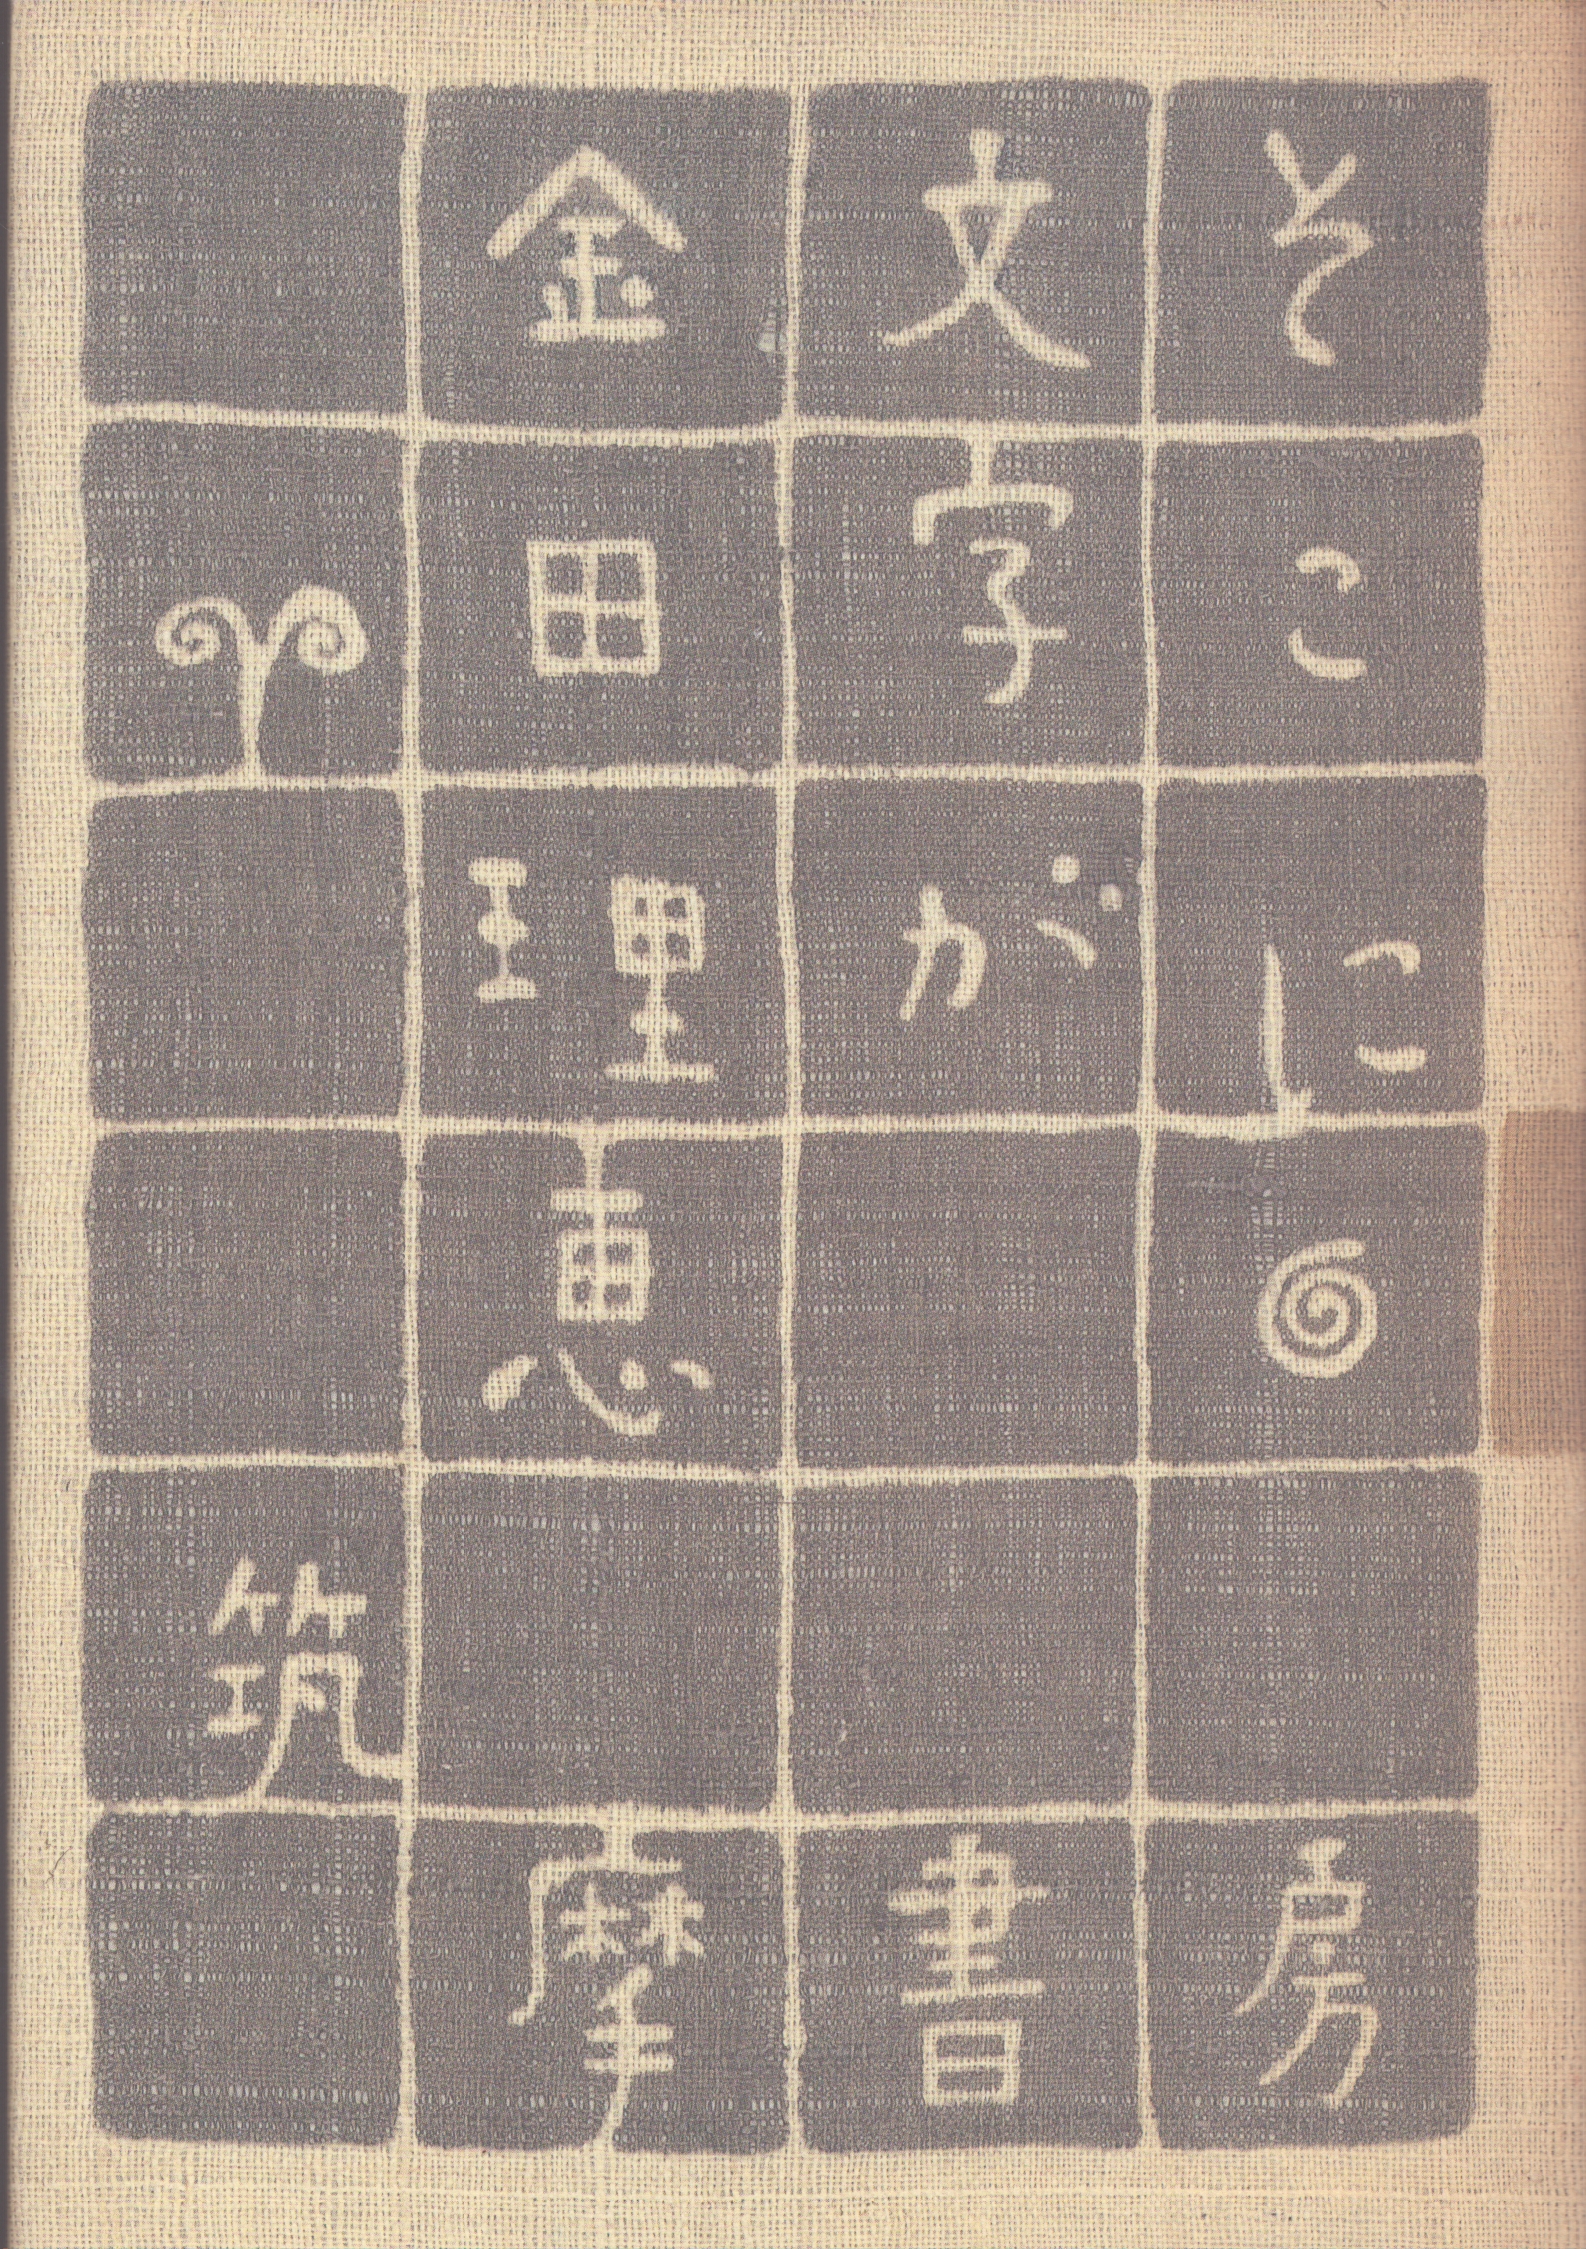 そこに
文字が
金田理恵
筑摩書房